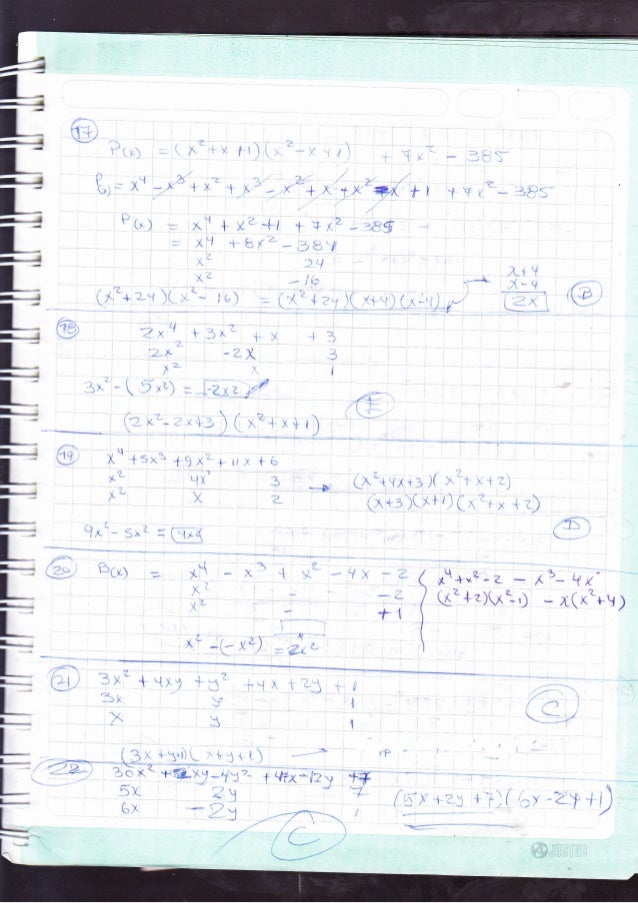 17
P(x) = (x²+x+1)(x²-x+1) + 7x² - 385
P(x) = x⁴ - x³ + x² + x³ - x² + x + x² - x + 1 + 7x² - 385
P(x) = x⁴ + x² + 1 + 7x² - 385
= x⁴ + 8x² - 384
x² 24
x² -16
(x²+24)(x²-16) = (x²+24)(x+4)(x-4)
x+4
x-4
2x
B
18
2x⁴ + 3x² + x + 3
2x² -2x 3
x² x 1
3x² - (5x²) = -2x²
(2x²-2x+3)(x²+x+1)
E
19
x⁴+5x³+9x²+11x+6
x² 4x 3 → (x²+4x+3)(x²+x+2)
x² x 2 (x+3)(x+1)(x²+x+2)
9x²-5x² = 4x²
D
20
B(x) = x⁴ - x³ + x² - 4x - 2
x² - -2
x² - +1
x² - (-x²) = 2x²
x⁴+x²-2 - x³-4x
(x²+2)(x²-1) - x(x²+4)
21
3x² + 4xy + y² + 4x + 2y + 1
3x y 1
x y 1
(3x+y+1)(x+y+1) →
C
22
30x² + 2xy - 4y² + 47x - 12y + 7
5x 2y 7
6x -2y 1
(5x+2y+7)(6x-2y+1)
C
JUSTUS